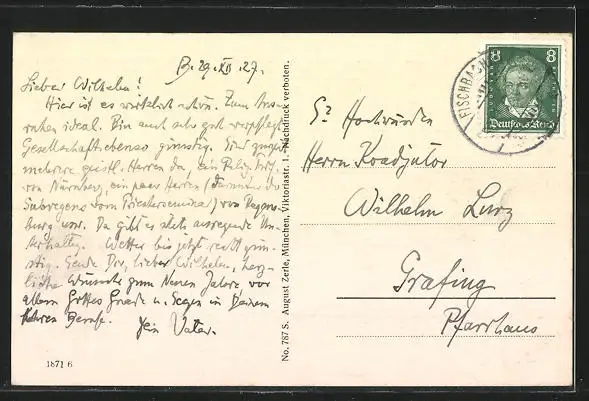 B. 29. XII. 27.
Lieber Wilhelm!
Hier ist es wirklich schön. Zum Aus-
ruhen ideal. Bin auch sehr gut verpflegt
Gesellschaft ebenso günstig. Sind
mehrere geistl. Herren da, ein
von Nürnberg, ein paar Herren (darunter der
Subregens vom Priesterseminar) von Regens-
burg usw. Da gibt es stets anregende Un-
terhaltg. Wetter bis jetzt recht güns-
tig. Sende Dir, lieber Wilhelm, herz-
liche Wünsche zum Neuen Jahre, vor
allem Gottes Gnade u. Segen in Deinem
hehren Berufe. Dein Vater.
1871 6
No. 787 S. August Zerle, München, Viktoriastr. 1. Nachdruck verboten.
FISCHBACH
8 8
Deutsches Reich
Sr Hochwürden
Herrn Koadjutor
Wilhelm Lurz
Grafing
Pfarrhaus